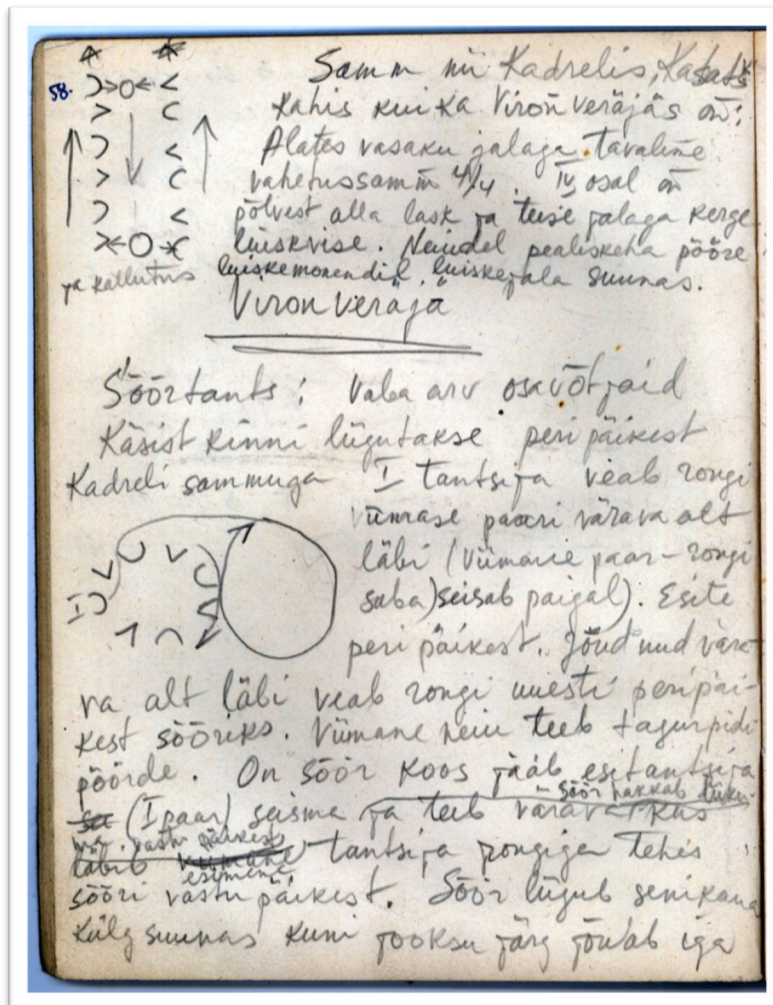 58.
Samm nii Kadrelis, Kasats
kahis kui ka Viron veräjäs on:
Alates vasaku jalaga tavaline
vahetussamm 4/4. IV osal on
põlvest alla lask ja teise jalaga kerge
luiskvise. Neiudel pealiskeha pööre
ja kallutus luiskemomendil luiskejala suunas.
Viron Veräjä
Söörtants: Vaba arv osavõtjaid
Käsist kinni liigutakse peripäikest
Kadreli sammuga I tantsija veab rongi
viimase paari värava alt
läbi (viimane paar - rongi
saba) seisab paigal). Esite
peri päikest. Jõudnud vära-
va alt läbi veab rongi uuesti peripäi-
kest sööriks. Viimane neiu teeb tagurpidi
pöörde. On söör koos jääb esitantsija
(I paar) seisma ja teeb värava kus
söör hakkab liiku-
vastu päikest
läbib esimene tantsija rongiga tehes
sööri vastu päikest. Söör liigub senikaua
külg suunas kuni jooksu järg jõuab iga